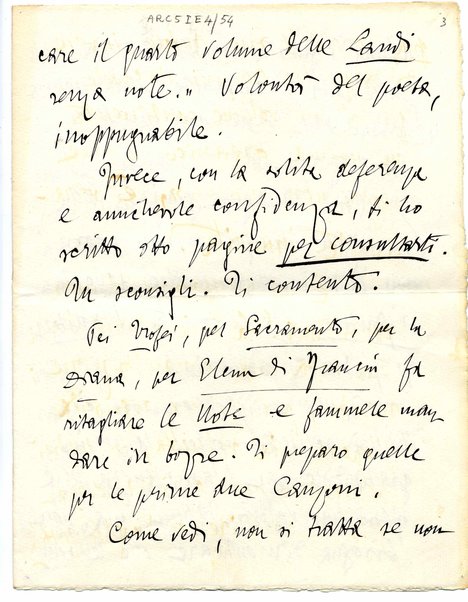 ARC 5 I E 4/54
3
care il quarto volume delle Laudi
senza note." Volontà del poeta,
inoppugnabile.
Invece, con la solita deferenza
e amichevole confidenza, ti ho
scritto otto pagine per consultarti.
Tu sconsigli. Ti contento.
Pei Trofei, pel Sacramento, per la
Diana, per Elena di Francia fa
ritagliare le Note e fammele man
dare in bozze. Ti preparo quelle
per le prime due Canzoni.
Come vedi, non si tratta se non